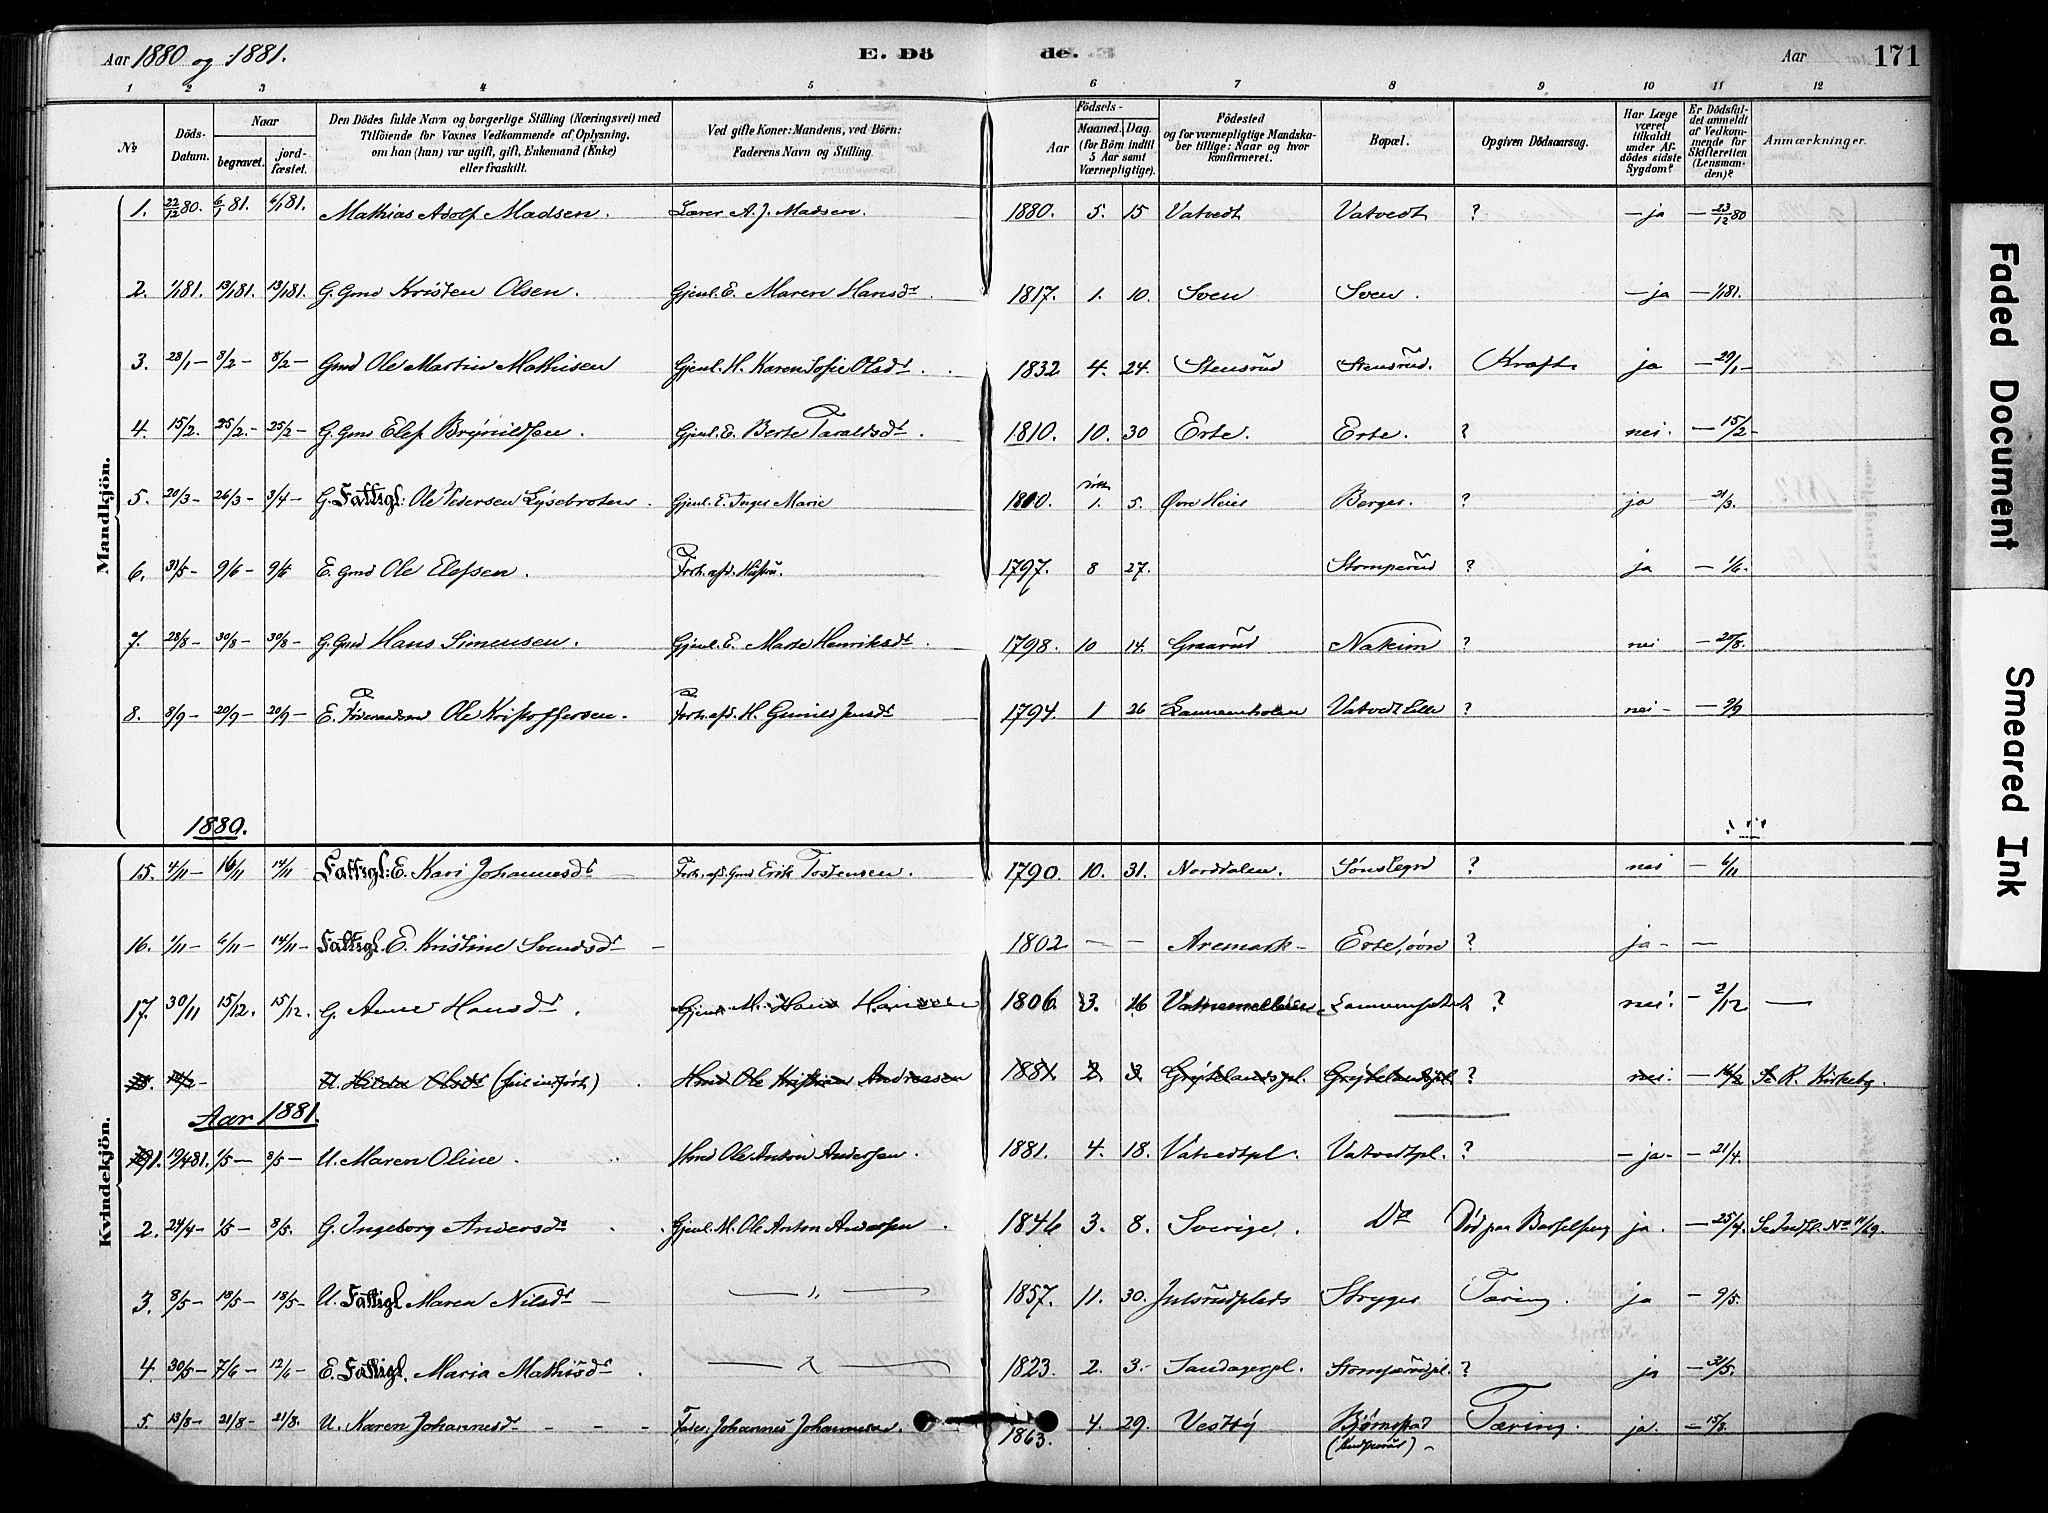 Aar 1880 og 1881. E. Dö de. Aar 171
1 2 3 4 5 6 7 8 9 10 11 12
No
Döds-Datum.
Naar
begravet.
jord-fæstet.
Den Dödes fulde Navn og borgerlige Stilling (Næringsvei) med
Tilföiende for Voxnes Vedkommende af Oplysning,
om han (hun) var ugift, gift, Enkemand (Enke)
eller fraskilt.
Ved gifte Koner: Mandens, ved Börn:
Faderens Navn og Stilling.
Födsels-
Aar
Maaned. Dag.
(for Börn indtil
5 Aar samt
Værnepligtige).
Födested
og for værnepligtige Mandska-
ber tillige: Naar og hvor
konfirmeret.
Bopæl.
Opgiven Dödsaarsag.
Har Læge
været
tilkaldt
under Af-
dödes sidste
Sygdom?
Er Dödsfal-
det anmeldt
af Vedkom-
mende for
Skifteretten
(Lensman-
den)?
Anmærkninger.
Mandkjön.
1. 22/12 80. 6/1 81. 6/1 81. Mathias Adolf Madsen. Lærer A. J. Madsen. 1880. 5. 15 Vatvedt Vatvedt ? – ja – 23/12 80
2. 1/1 81. 13/1 81. 13/1 81. G. Gmd Kristen Olsen. Gjenl. E. Maren Hansdt. 1817. 1. 10. Sven Sven. – ja – 1/1 81.
3. 28/1 – 8/2 – 8/2 – Gmd Ole Martin Mathisen Gjenl. H. Karen Sofie Olsdt. 1832 4. 24. Stensrud Stensrud. Kræft. ja – 29/1 –
4. 15/2. 25/2. – 25/2 – G. Gmd Elef Brynildsen. Gjenl. E. Berte Taraldsdt. 1810. 10. 30 Erte. Erte. ? nei. – 15/2 –
5. 20/3 – 26/3 – 3/4 – G. Fattigl: Ole Pedersen Lysebroten. Gjenl. E. Inger Marie 1800. 1. 5. Øvre Heier Berger. ? ja – 21/3.
6. 31/5 – 9/6 – 9/6 E. Gmd Ole Elefsen. Forh. afd. Hustru. 1797. 8 27. Stomperud ? ja – 1/6 –
7. 28/8 – 30/8 – 30/8 – G. Gmd Hans Simensen. Gjenl. E. Marte Henriksdt. 1798. 10 14. Graarud Nakim ? nei – 29/8.
8. 8/9 – 20/9 – 20/9 – E. Føderaadsmd Ole Kristoffersen. Forh. afd. H. Gunild Jensdt 1794. 1 26 Vatvedt lille ? nei – – 9/9
1880.
Kvindekjön.
15. 4/11 – 16/11 14/11 Fattigl: E. Kari Johannesdt – Forh. afd. Gmd Erik Tostensen. 1790. 10. 31. Nordtalen. Sønstegn ? nei – 6/11
16. 1/11 – 6/11 – 14/11 – Fattigl. E. Kristine Svendsdt – 1802 – – Aremark – Erte, øvre ? ja – –
17. 30/11 15/12. 15/12. G. Anne Hansdt. Gjenl. M. Hans Hansen 1806. 3. 16 ? nei. – 2/12 –
18. 14/2 – U. Hilda Olsdt (feil indført) Hmd Ole Kristian Andreasen 1881 2 3 Grejtelandspl. Grejtelandspl ? nei. – 16/2 Se R. Kirkebog.
Aar 1881.
1. 19/4 81. 1/5 – 8/5 – U. Maren Oline. Hmd Ole Anton Andersen. 1881. 4. 18. Vatvedtpl. Vatvedtpl. ? – ja – – 21/4.
2. 24/4 – 1/5 – 8/5. G. Ingeborg Andersdt. Gjenl. M. Ole Anton Andersen. 1846 3. 8. Sverige. Do Død paa Barselseng ja. – 25/4. Se Indfl. No 11/69.
3. 8/5 – 18/5 – 18/5 – U. Fattigl Maren Nilsdt – — „ — 1857. 11. 30. Julsrudplads Strygen Tæring. ja – 9/5.
4. 30/5 – 7/6 – 12/6 – E. Fattigl. Maria Mathisdt. 1823. 2. 3. – Sandagerpl. Stomperudpl. ? ja – 31/5.
5. 13/8 – 21/8 – 21/8. U. Karen Johannesdt – – – Fader: Johannes Johannesen. 1863. 4. 29. Vestby Bjørnstad Tæring. ja. – 15/8.
Faded Document
Smeared Ink